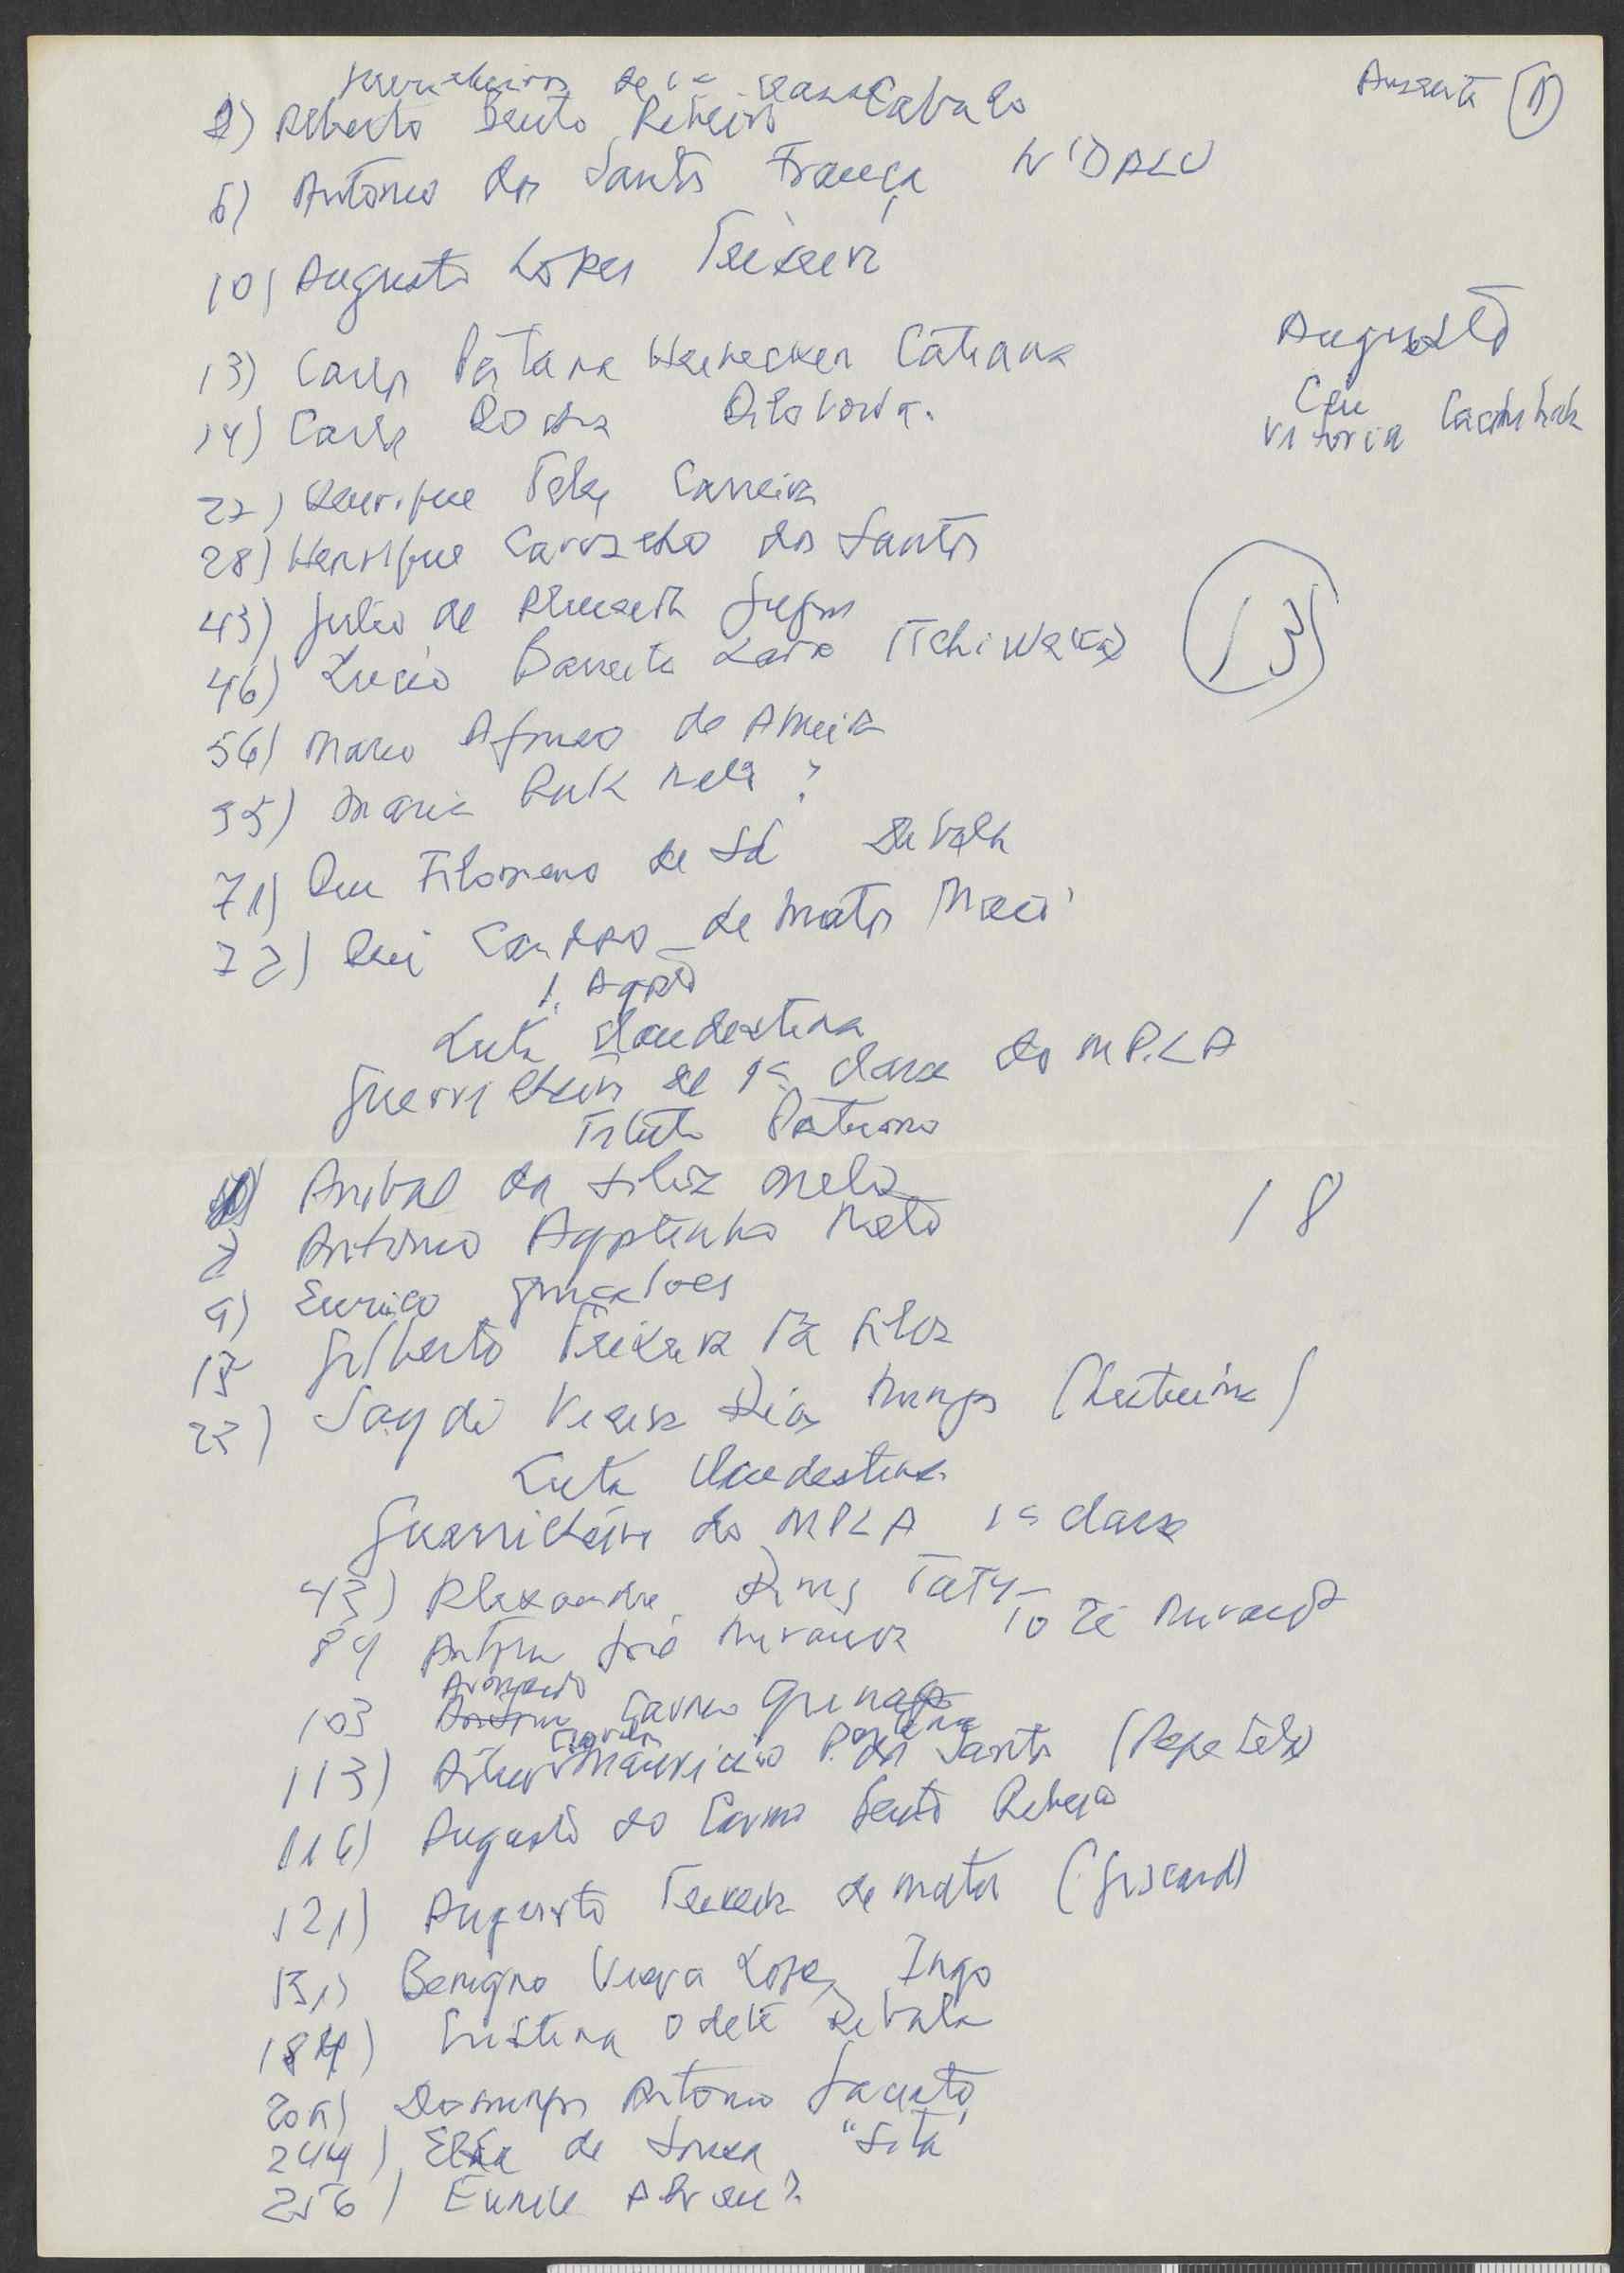 Ausente (1)
Guerrilheiros de 1ª classe
2) Alberto Bento Ribeiro Cabulo
6) Antonio dos Santos França N'DALU
10) Augusto Lopes Teixeira
13) Carlos Pestana Heinecken Catiana
14) Carlos Rocha Dilolwa.
Augusto
Ceu
Vitoria
22) Henrique Teles Carreira
28) Henrique Carvalho dos Santos
43) Julio de Almeida Jujú
46) Lucio Barreto Lara Tchiweka
(13)
56) Mario Afonso de Almeida
55) Maria Ruth Neto ?
71) Rui Filomeno de Sá Dibala
72) Rui Candido de Matos
1. Agosto
Luta Clandestina
Guerrilheiros de 1ª classe do MPLA
Anibal da Silva Melo
18
2 Antonio Agostinho Neto
9) Eurico Gonçalves
15 Gilberto Teixeira da Silva
22) Saydi Vieira Dias Mingas (Lutuima)
Luta Clandestina
Guerrilheiros do MPLA 1ª classe
42) Alexandre Dinis Taty
84 Antonio José Miranda To Zé Miranda
103 Antonio
113) Artur Carlos Mauricio Pestana dos Santos (Pepetela)
116) Augusto do Carmo Bento Ribeiro
121) Augusto Teixeira de Matos (Giscard)
131) Benigno Vieira Lopes Ingo
184) Cristina Odete Dibala
205) Domingos Antonio
244) Elsa de Sousa "Sita"
256) Eunice Abreu?